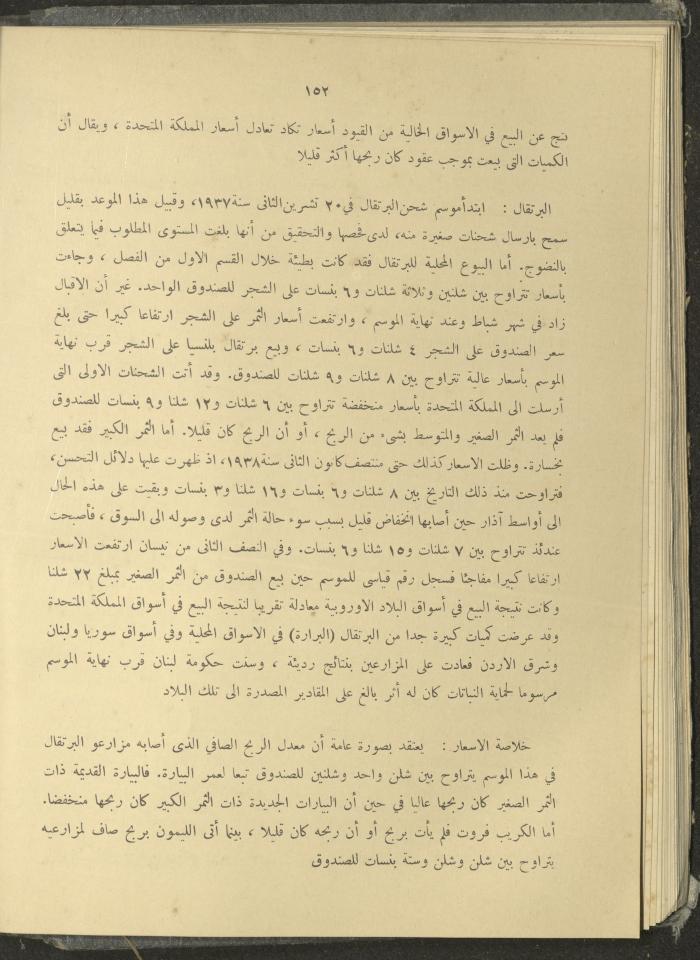 ١٥٢
نتج عن البيع في الاسواق الحالية من القيود أسعار تكاد تعادل أسعار المملكة المتحدة ، ويقال أن
الكميات التى بيعت بموجب عقود كان ربحها أكثر قليلا
البرتقال : ابتدأ موسم شحن البرتقال في ٢٠ تشرين الثانى سنة ١٩٣٧، وقبيل هذا الموعد بقليل
سمح بارسال شحنات صغيرة منه، لدى فحصها والتحقيق من أنها بلغت المستوى المطلوب فيما يتعلق
بالنضوج. أما البيوع المحلية للبرتقال فقد كانت بطيئة خلال القسم الاول من الفصل ، وجاءت
بأسعار تتراوح بين شلنين وثلاثة شلنات و٦ بنسات على الشجر للصندوق الواحد. غير أن الاقبال
زاد في شهر شباط وعند نهاية الموسم ، وارتفعت أسعار الثمر على الشجر ارتفاعا كبيرا حتى بلغ
سعر الصندوق على الشجر ٤ شلنات و٦ بنسات ، وبيع برتقال بلنسيا على الشجر قرب نهاية
الموسم بأسعار عالية تتراوح بين ٨ شلنات و٩ شلنات للصندوق. وقد أتت الشحنات الاولى التى
أرسلت الى المملكة المتحدة بأسعار منخفضة تتراوح بين ٦ شلنات و١٢ شلنا و٩ بنسات للصندوق
فلم يعد الثمر الصغير والمتوسط بشىء من الربح ، أو أن الربح كان قليلا. أما الثمر الكبير فقد بيع
بخسارة. وظلت الاسعار كذلك حتى منتصف كانون الثانى سنة ١٩٣٨، اذ ظهرت عليها دلائل التحسن،
فتراوحت منذ ذلك التاريخ بين ٨ شلنات و٦ بنسات و١٦ شلنا و٣ بنسات وبقيت على هذه الحال
الى أواسط آذار حين أصابها انخفاض قليل بسبب سوء حالة الثمر لدى وصوله الى السوق ، فأصبحت
عندئذ تتراوح بين ٧ شلنات و١٥ شلنا و٦ بنسات. وفي النصف الثانى من نيسان ارتفعت الاسعار
ارتفاعا كبيرا مفاجئا فسجل رقم قياسى للموسم حين بيع الصندوق من الثمر الصغير بمبلغ ٢٢ شلنا
وكانت نتيجة البيع في أسواق البلاد الاوروبية معادلة تقريبا لنتيجة البيع في أسواق المملكة المتحدة
وقد عرضت كميات كبيرة جدا من البرتقال (البرارة) في الاسواق المحلية وفي أسواق سوريا ولبنان
وشرق الاردن فعادت على المزارعين بنتائج رديئة ، وسنت حكومة لبنان قرب نهاية الموسم
مرسوما لحماية النباتات كان له أثر بالغ على المقادير المصدرة الى تلك البلاد
خلاصة الاسعار : يعتقد بصورة عامة أن معدل الربح الصافي الذى أصابه مزارعو البرتقال
في هذا الموسم يتراوح بين شلن واحد وشلنين للصندوق تبعا لعمر البيارة. فالبيارة القديمة ذات
الثمر الصغير كان ربحها عاليا في حين أن البيارات الجديدة ذات الثمر الكبير كان ربحها منخفضا.
أما الكريب فروت فلم يأت بربح أو أن ربحه كان قليلا ، بينما أتى الليمون بربح صاف لمزارعيه
يتراوح بين شلن وشلن وستة بنسات للصندوق